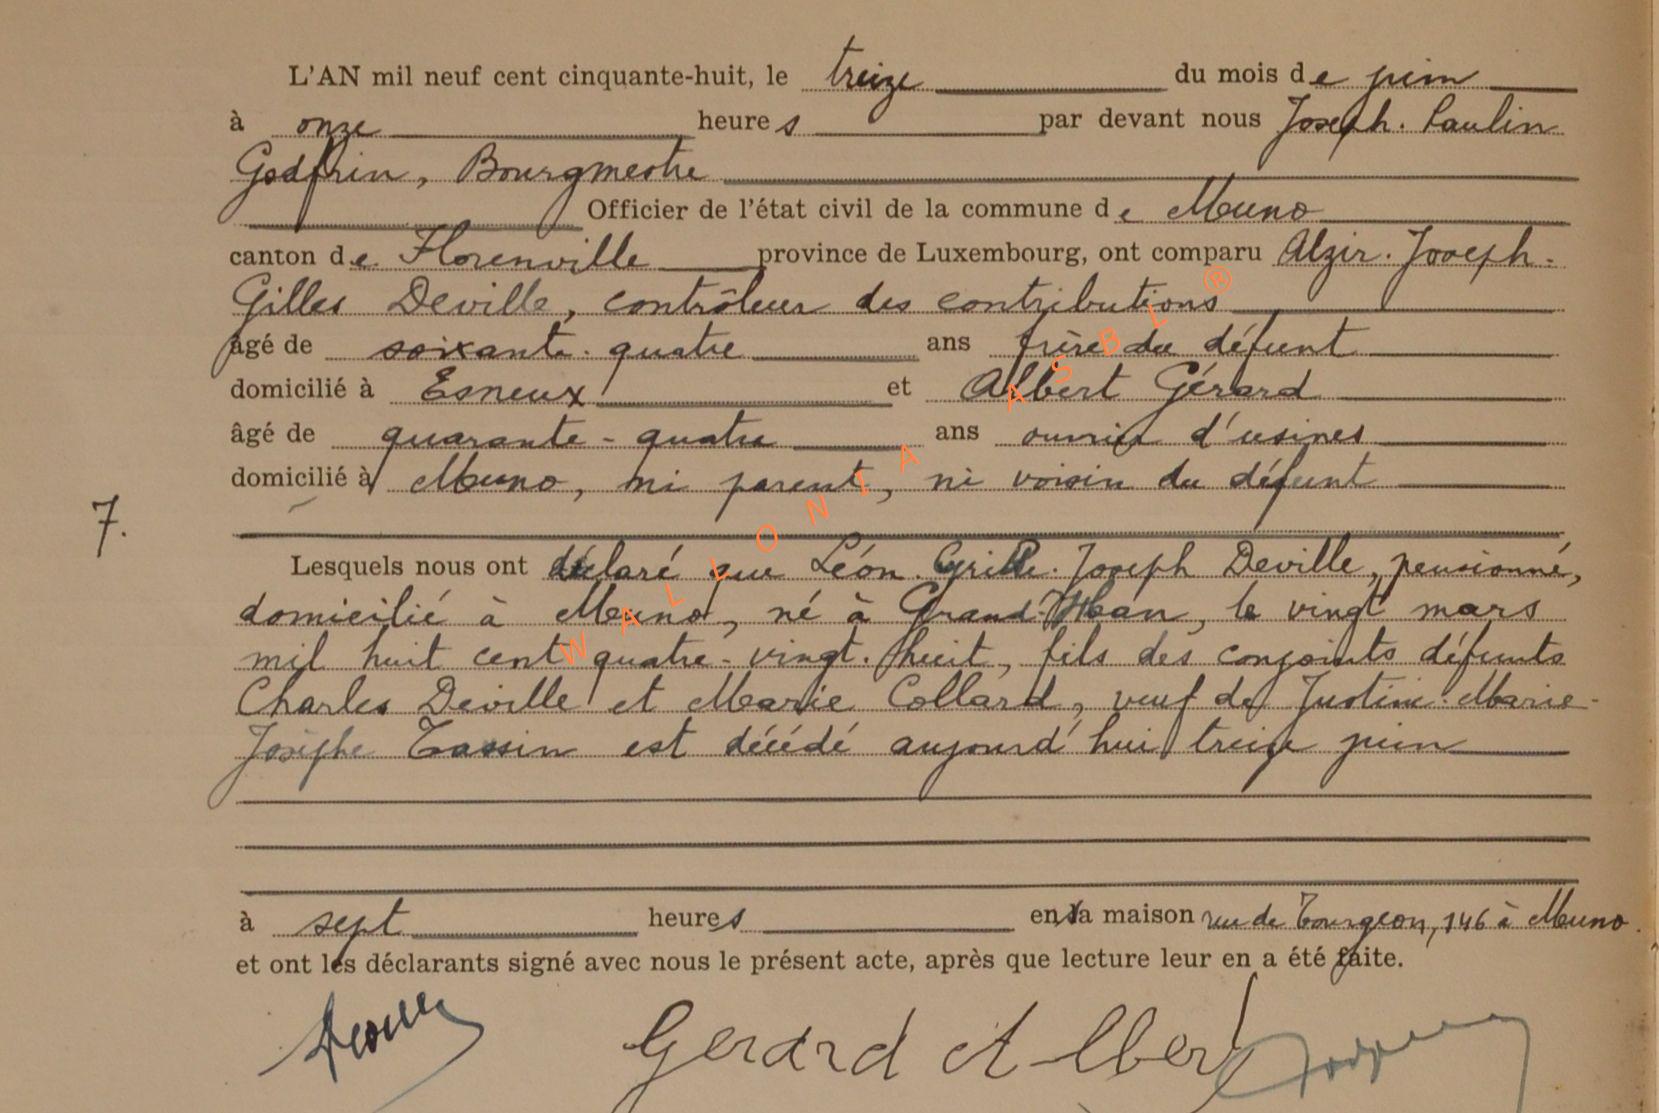 L'AN mil neuf cent cinquante-huit, le treize du mois de juin
à onze heures par devant nous Joseph. Paulin
Godfrin, Bourgmestre
Officier de l'état civil de la commune de Muno
canton de Florenville province de Luxembourg, ont comparu Alzir. Joseph-
Gilles Deville, contrôleur des contributions
âgé de soixante-quatre ans frère du défunt
domicilié à Esneux et Albert Gérard
âgé de quarante-quatre ans ouvrier d'usines
domicilié à Muno, ni parent, ni voisin du défunt
7.
Lesquels nous ont déclaré que Léon. Joseph Deville, pensionné,
domicilié à Muno, né à Grand-Han, le vingt mars
mil huit cent quatre-vingt-huit, fils des conjoints défunts
Charles Deville et Marie Collard, veuf de Justine-Marie-
Josèphe Tassin est décédé aujourd'hui treize juin
à sept heures en sa maison rue de Tourgeon, 146 à Muno.
et ont les déclarants signé avec nous le présent acte, après que lecture leur en a été faite.
Gerard Albert
WALLONIA ASBL ®